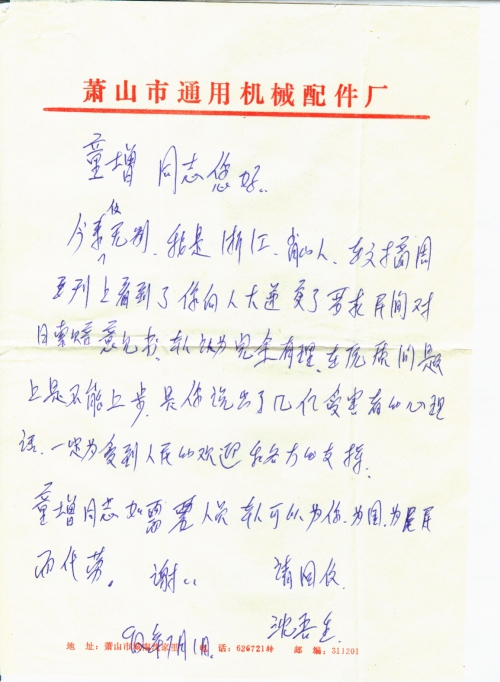 萧山市通用机械配件厂
童增 同志您好..
今来仅无别、我是浙江、肖山人、在文摘周
刊上看到了你向人大递交了要求民间对
日索赔意见书、本人认为完全有理、在原则问题
上是不能上步、是你说出了几亿受害者的心理
话、一定会受到人民的欢迎和各方的支持、
童增同志如需要人员 本人可以为你、为国、为民
而代劳。 谢.. 请回信
沈
年7月1日
地 址:萧山市 家里 电 话:626721转 邮 编:311201